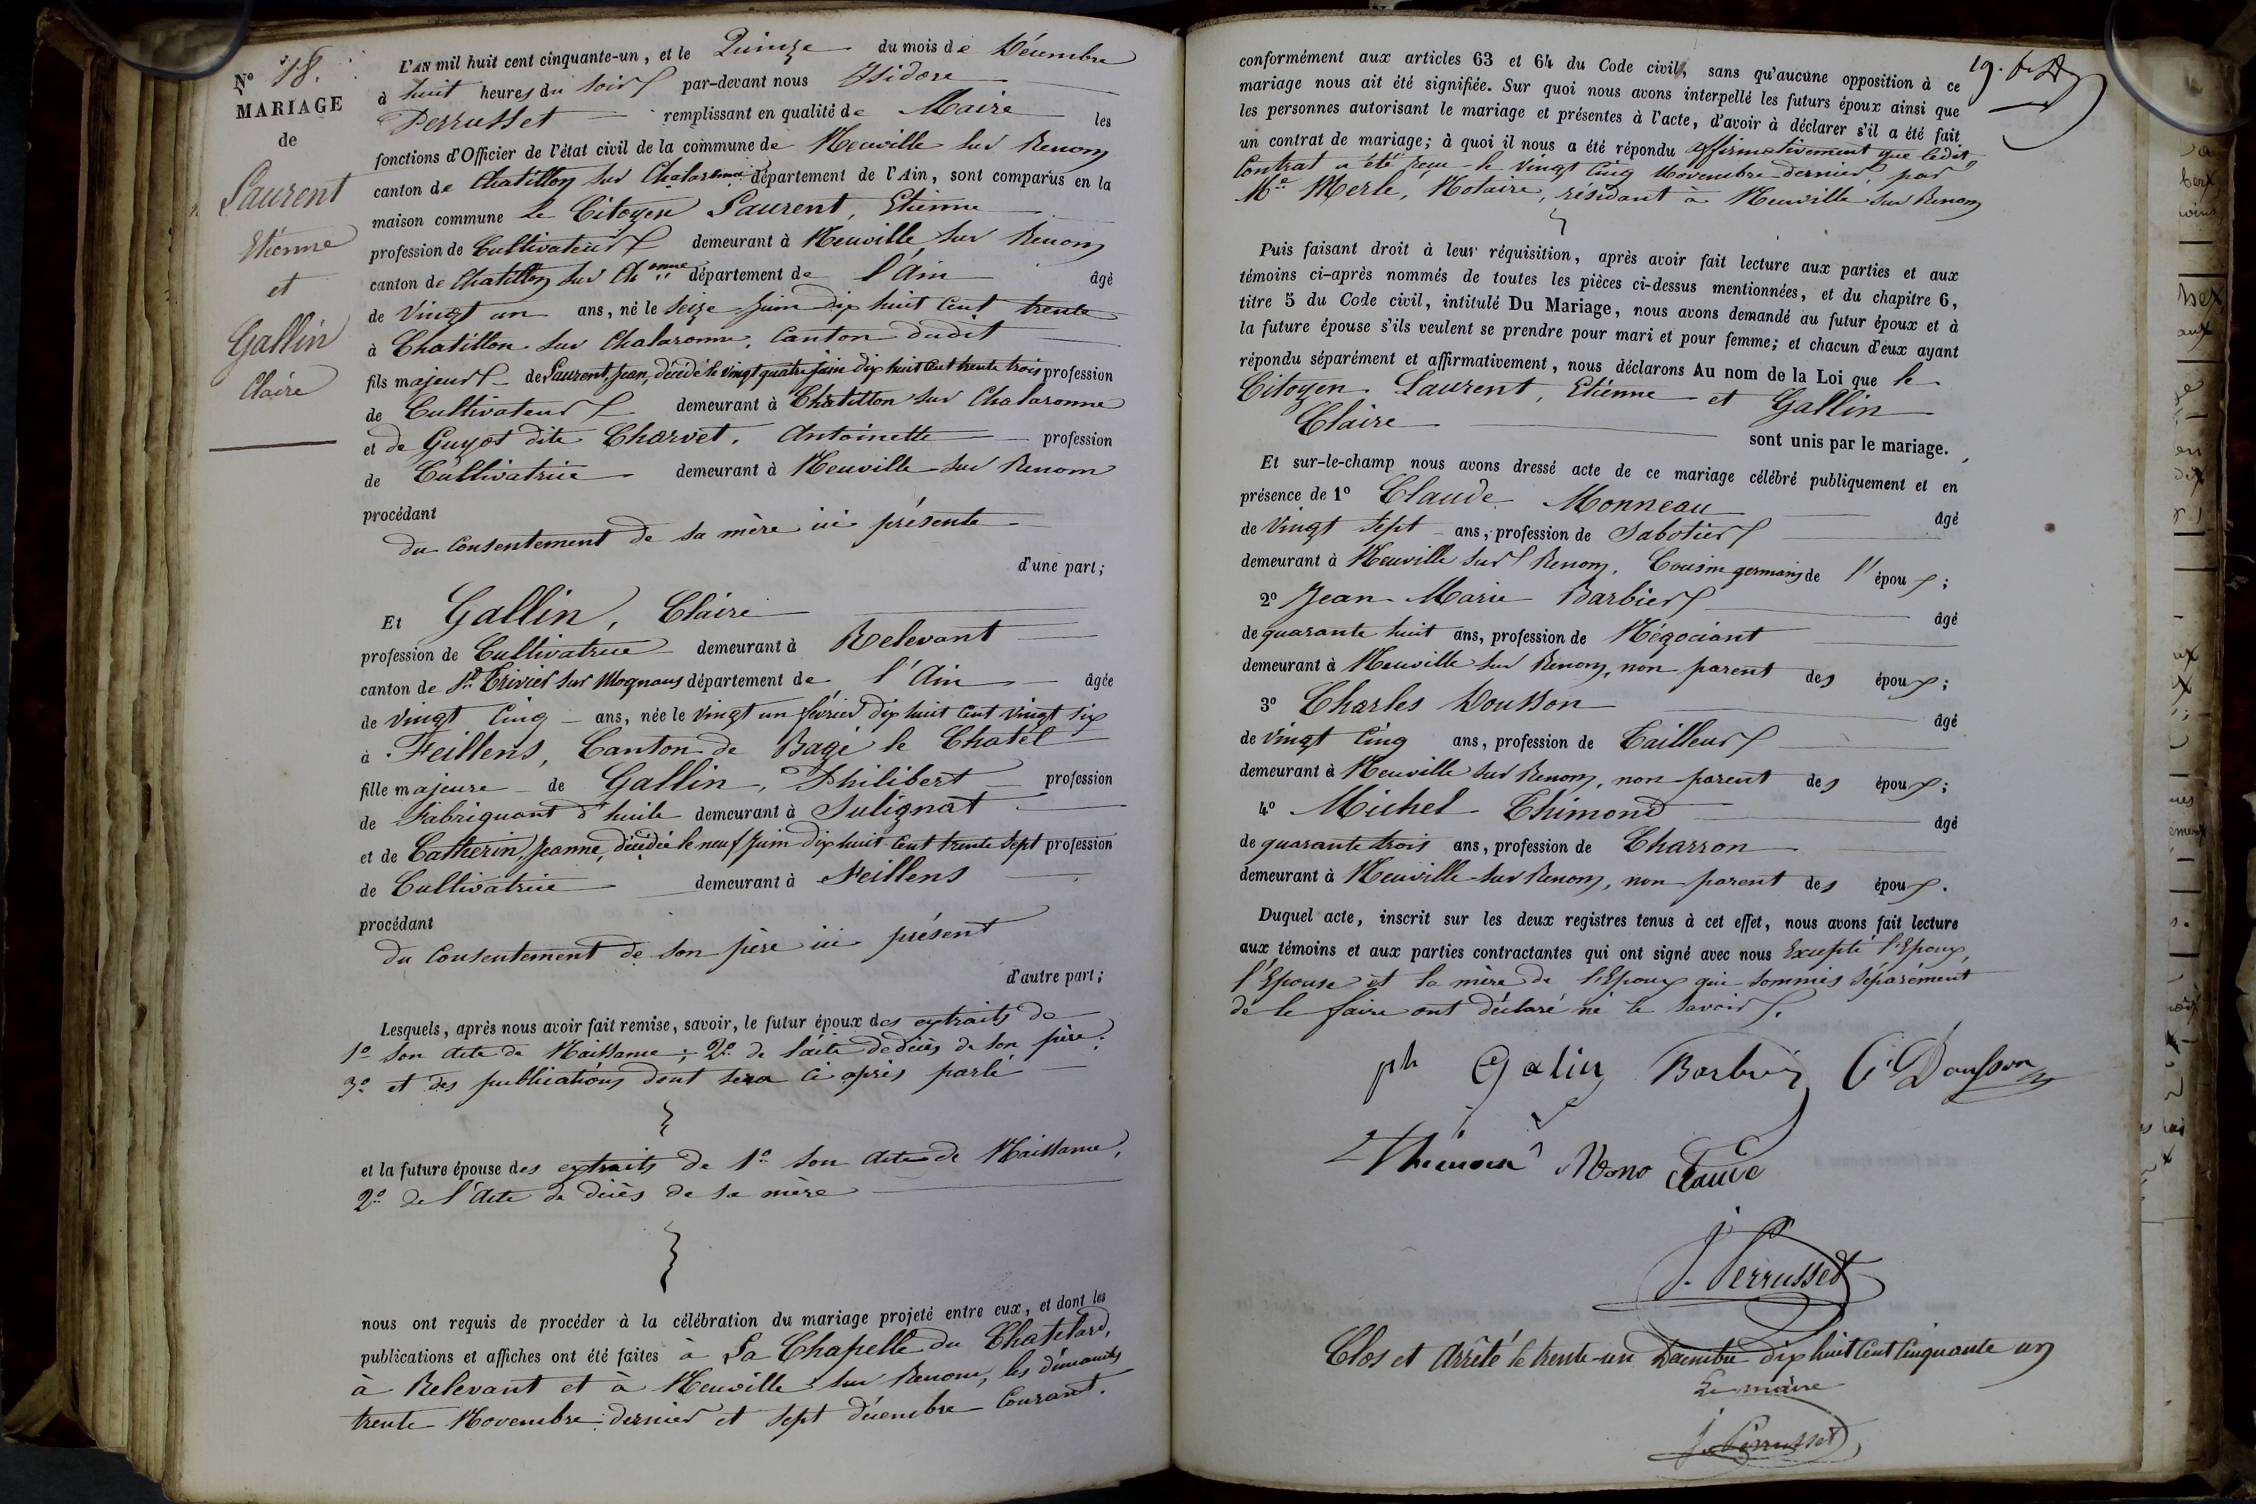 N° 18.
MARIAGE
de
Laurent
Etienne
et
Gallin
Claire
L'AN mil huit cent cinquante-un, et le Quinze du mois de Décembre
à huit heures du soir par-devant nous Isidore
Perrusset remplissant en qualité de Maire les
fonctions d'Officier de l'état civil de la commune de Neuville sur Renom
canton de Chatillon sur Chalaronne département de l'Ain, sont comparus en la
maison commune le Citoyen Laurent, Etienne
profession de Cultivateur demeurant à Neuville sur Renom
canton de Chatillon sur Ch.onne département de l'Ain âgé
de vingt un ans, né le seize Juin dix huit cent trente
à Chatillon sur Chalaronne, Canton dudit
fils majeur de Laurent, Jean, décédé le vingt quatre juin dix huit cent trente trois profession
de Cultivateur demeurant à Châtillon sur Chalaronne
et de Guyot dite Charvet, Antoinette profession
de Cultivatrice demeurant à Neuville sur Renom
procédant
du consentement de sa mère ici présente
d'une part;
Et Gallin, Claire
profession de Cultivatrice demeurant à Relevant
canton de St. Trivier sur Mognans département de l'Ain âgée
de vingt cinq ans, née le vingt un février dix huit cent vingt six
à Feillens, Canton de Bagé le Chatel
fille majeure de Gallin, Philibert profession
de Fabriquant d'huile demeurant à Sulignat
et de Catherin, Jeanne, décédée le neuf Juin dix huit cent trente sept profession
de Cultivatrice demeurant à Feillens
procédant
du consentement de son père ici présent
d'autre part;
Lesquels, après nous avoir fait remise, savoir, le futur époux des extraits de
1° son acte de Naissance; 2° de l'acte de décès de son père;
3° et des publications dont sera ci après parlé
et la future épouse des extraits de 1° son acte de Naissance,
2° de l'acte de décès de sa mère
nous ont requis de procéder à la célébration du mariage projeté entre eux, et dont les
publications et affiches ont été faites à La Chapelle du Chatelard,
à Relevant et à Neuville sur Renom, les dimanches
trente Novembre dernier et sept décembre courant.
conformément aux articles 63 et 64 du Code civil, sans qu'aucune opposition à ce
mariage nous ait été signifiée. Sur quoi nous avons interpellé les futurs époux ainsi que
les personnes autorisant le mariage et présentes à l'acte, d'avoir à déclarer s'il a été fait
un contrat de mariage; à quoi il nous a été répondu affirmativement que ledit
Contrat a été reçu le vingt cinq Novembre dernier, par
Me Merle, Notaire, résidant à Neuville sur Renom
Puis faisant droit à leur réquisition, après avoir fait lecture aux parties et aux
témoins ci-après nommés de toutes les pièces ci-dessus mentionnées, et du chapitre 6,
titre 5 du Code civil, intitulé Du Mariage, nous avons demandé au futur époux et à
la future épouse s'ils veulent se prendre pour mari et pour femme; et chacun d'eux ayant
répondu séparément et affirmativement, nous déclarons Au nom de la Loi que le
Citoyen Laurent, Etienne et Gallin
Claire
sont unis par le mariage.
Et sur-le-champ nous avons dressé acte de ce mariage célébré publiquement et en
présence de 1° Claude Monneau âgé
de vingt sept ans, profession de Sabotier
demeurant à Neuville sur Renom, Cousin germain de l'époux;
2° Jean Marie Barbier âgé
de quarante huit ans, profession de Négociant
demeurant à Neuville sur Renom, non parent des époux;
3° Charles Dousson âgé
de vingt cinq ans, profession de Tailleur
demeurant à Neuville sur Renom, non parent des époux;
4° Michel Thimond âgé
de quarante trois ans, profession de Charron
demeurant à Neuville sur Renom, non parent des époux.
Duquel acte, inscrit sur les deux registres tenus à cet effet, nous avons fait lecture
aux témoins et aux parties contractantes qui ont signé avec nous Excepté l'Epoux,
l'Epouse et la mère de l'Epoux qui sommés séparément
de le faire ont déclaré ne le savoir.
ph Galin Barbier Ch Dousson
Thimon Mono Claude
J. Perrusset
Clos et Arrêté le trente-un Décembre dix huit cent cinquante un
Le maire
J. Perrusset